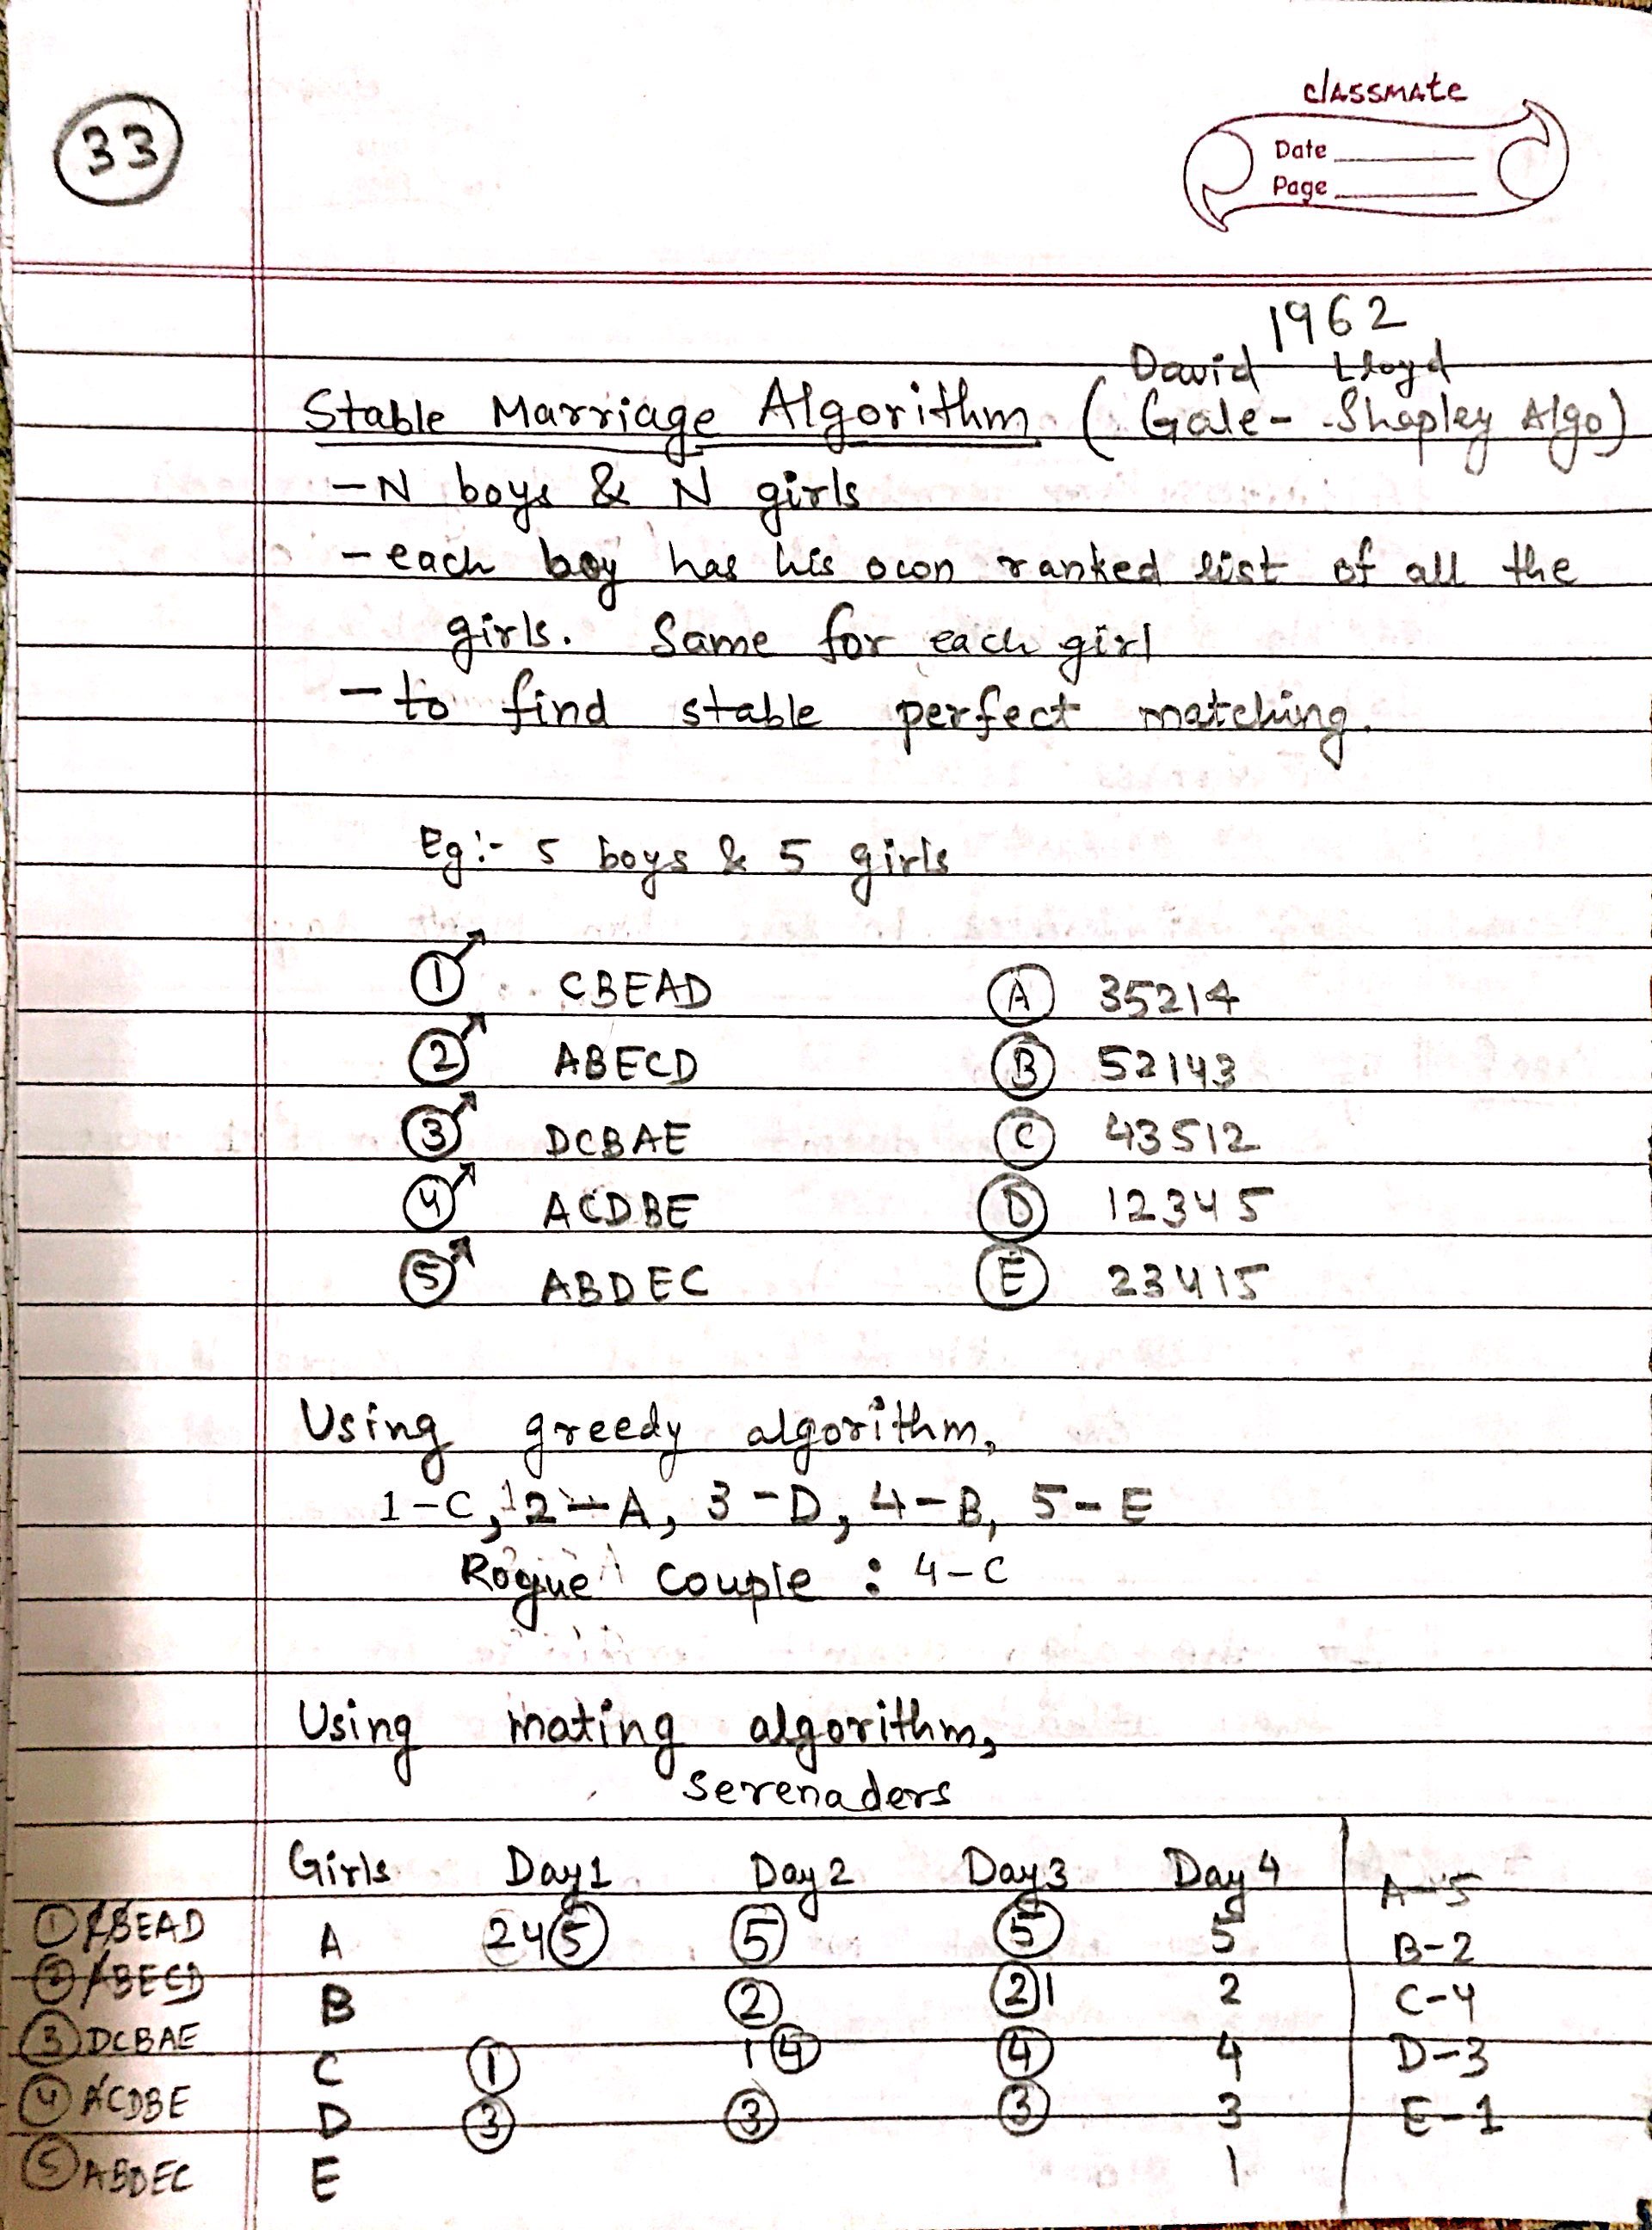 33
classmate
Date
Page
1962
David Lloyd
Stable Marriage Algorithm (Gale-Shapley Algo)
- N boys & N girls
- each boy has his own ranked list of all the
girls. Same for each girl
- to find stable perfect matching.
Eg:- 5 boys & 5 girls
1 CBEAD A 35214
2 ABECD B 52143
3 DCBAE C 43512
4 ACDBE D 12345
5 ABDEC E 23415
Using greedy algorithm,
1-C, 2-A, 3-D, 4-B, 5-E
Rogue Couple : 4-C
Using mating algorithm,
Serenaders
Girls Day1 Day2 Day3 Day4
A 245 5 5 5 A-5
B 2 21 2 B-2
C 1 14 4 4 C-4
D 3 3 3 3 D-3
E 1 E-1
1 CBEAD
2 ABECD
3 DCBAE
4 ACDBE
5 ABDEC